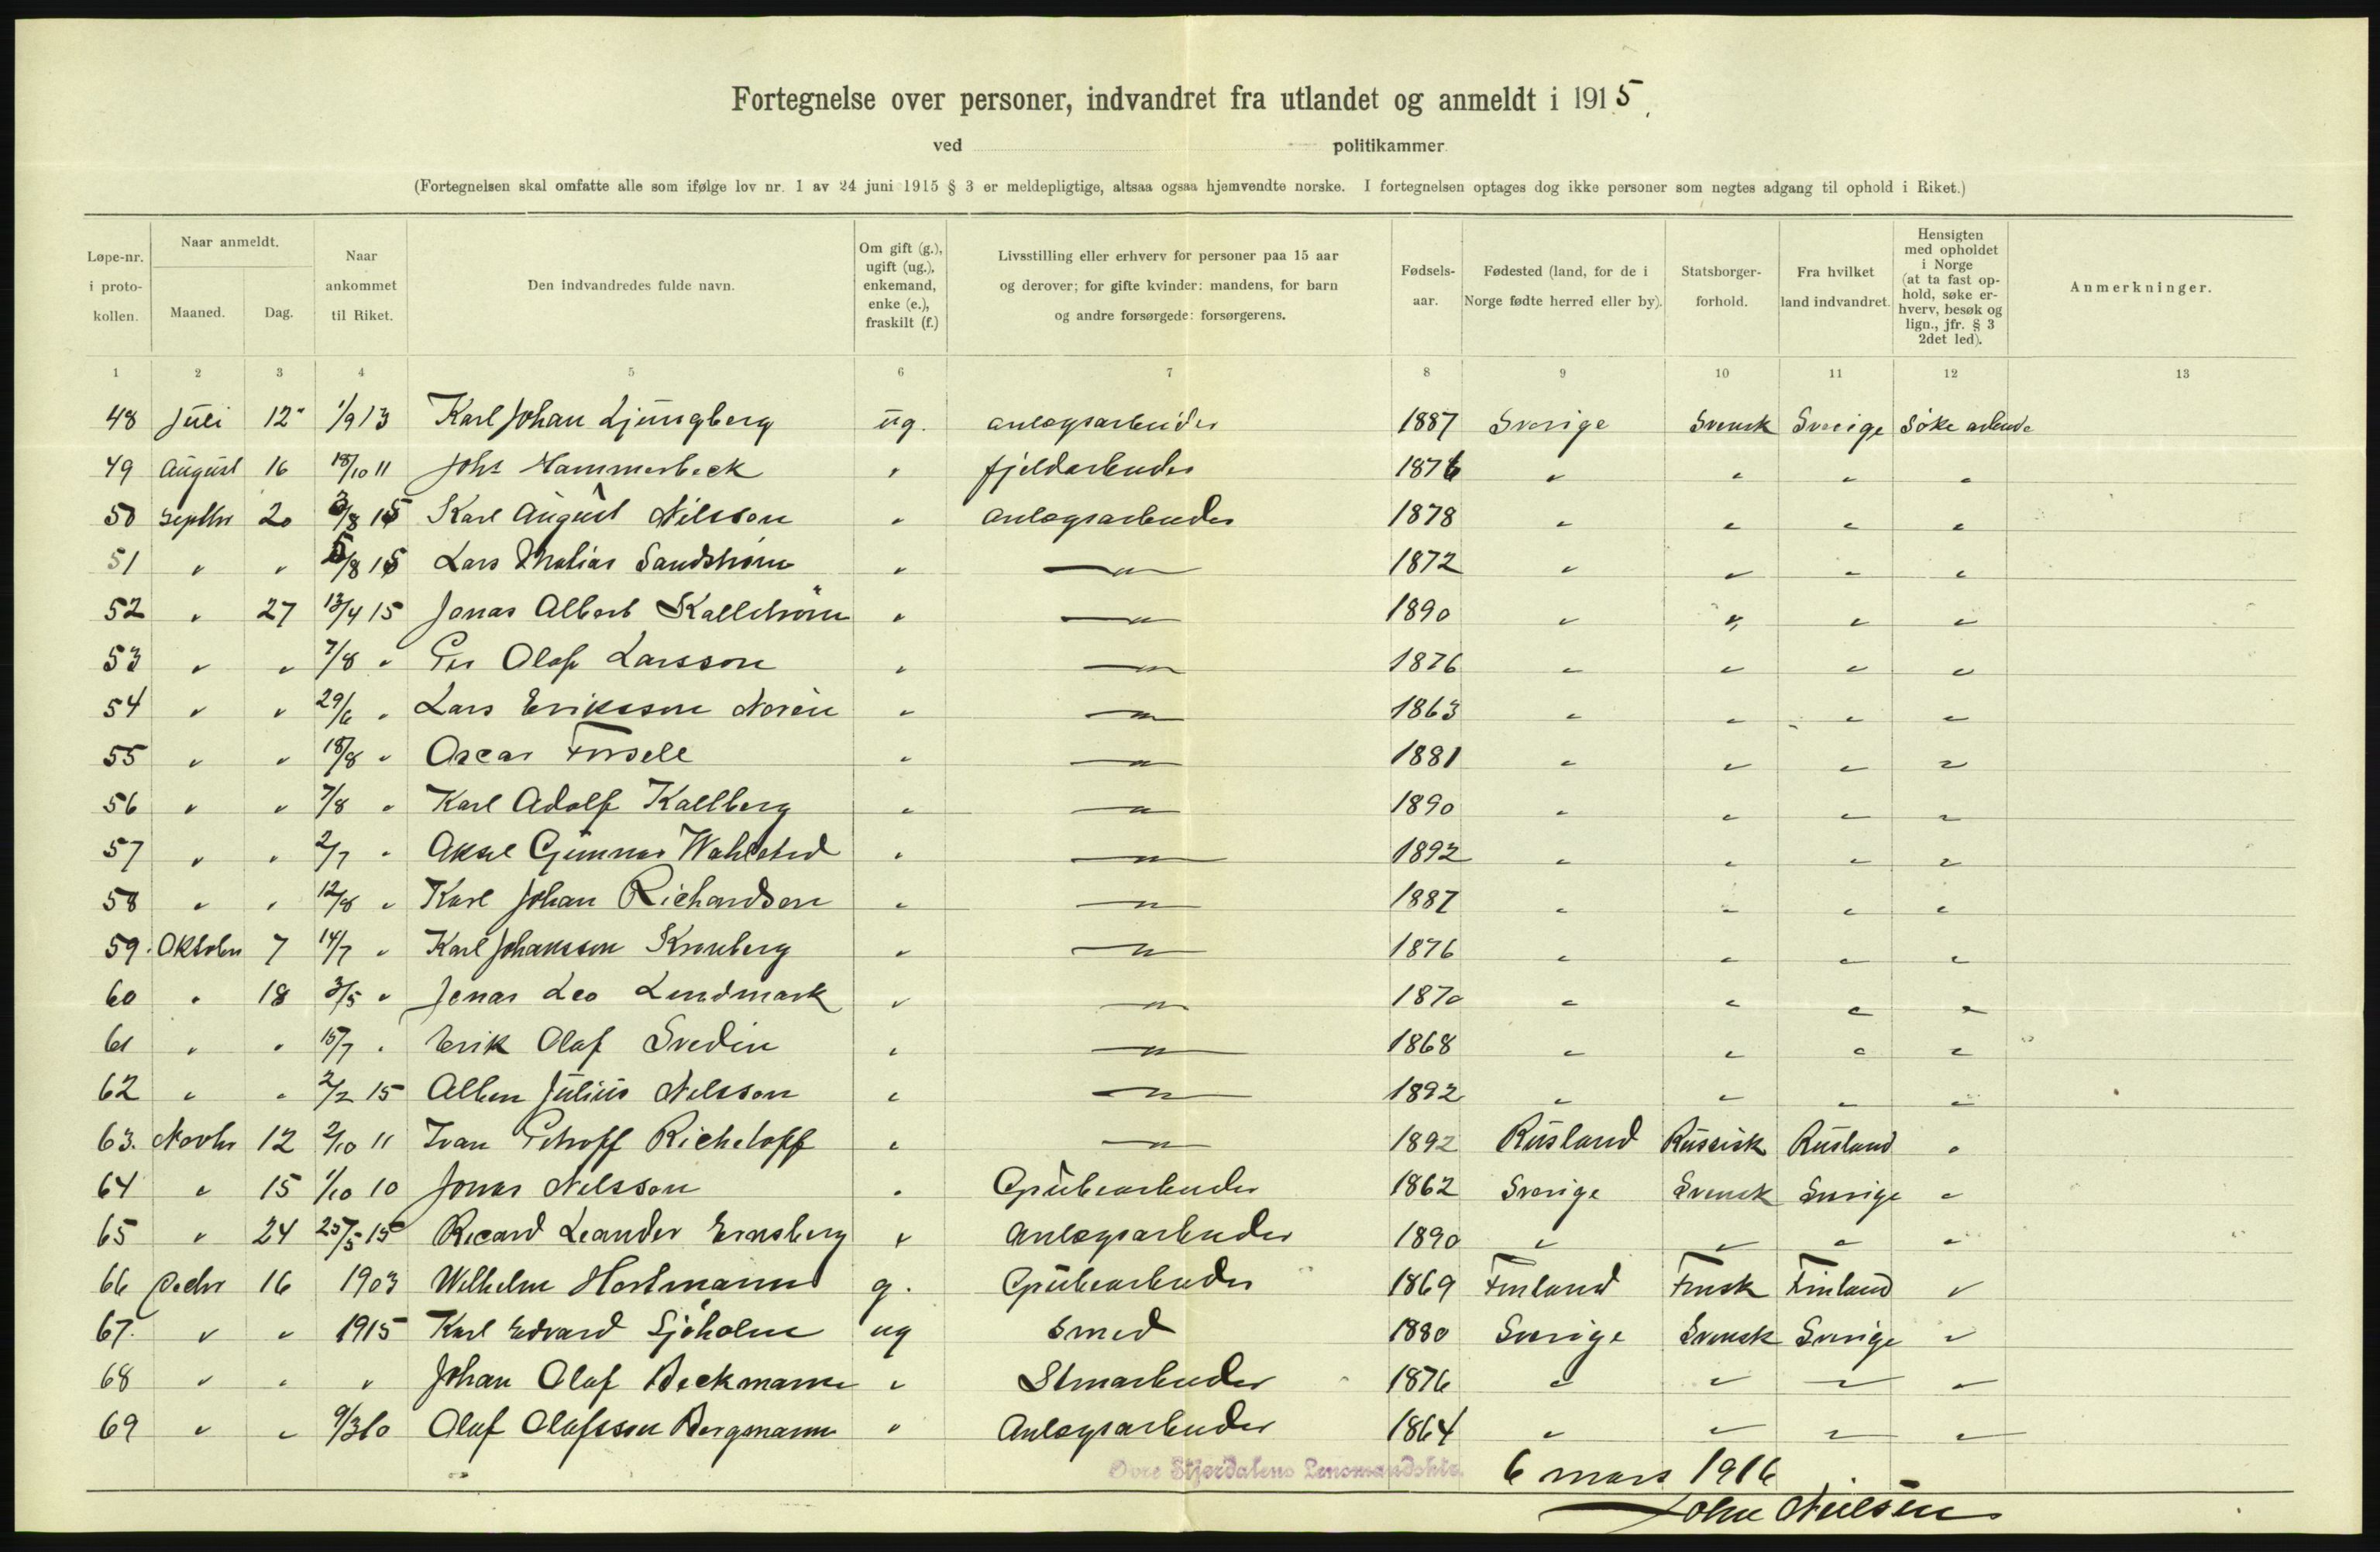 Fortegnelse over personer, indvandret fra utlandet og anmeldt i 1915.
ved politikammer
(Fortegnelsen skal omfatte alle som ifølge lov nr. 1 av 24 juni 1915 § 3 er meldepligtige, altsaa ogsaa hjemvendte norske. I fortegnelsen optages dog ikke personer som negtes adgang til ophold i Riket.)
Løpe-nr. i proto-kollen. Naar anmeldt. Maaned. Dag. Naar ankommet til Riket. Den indvandredes fulde navn. Om gift (g.), ugift (ug.), enkemand, enke (e.), fraskilt (f.) Livsstilling eller erhverv for personer paa 15 aar og derover; for gifte kvinder: mandens, for barn og andre forsørgede: forsørgerens. Fødsels-aar. Fødested (land, for de i Norge fødte herred eller by). Statsborger-forhold. Fra hvilket land indvandret. Hensigten med opholdet i Norge (at ta fast op-hold, søke er-hverv, besøk og lign., jfr. § 3 2det led). Anmerkninger.
1 2 3 4 5 6 7 8 9 10 11 12 13
48 Juli 12 1/9 13 Karl Johan Ljungberg ug. anlægsarbeider 1887 Sverige Svensk Sverige Søke arbeide
49 August 16 18/10 11 Johs Hammerbeck " fjeldarbeider 1876 " " " "
50 Septbr 20 3/8 15 Karl August Nilsson " anlægsarbeider 1878 " " " "
51 " " 5/8 15 Lars Mathias Sandström " — " — 1872 " " " "
52 " 27 13/4 15 Jonas Albert Kallström " — " — 1890 " " " "
53 " " 7/8 " Per Olof Larsson " — " — 1876 " " " "
54 " " 29/6 " Lars Eriksson Norén " — " — 1863 " " " "
55 " " 18/8 " Oscar Forsell " — " — 1881 " " " "
56 " " 7/8 " Karl Adolf Kallberg " — " — 1890 " " " "
57 " " 2/7 " Aksel Gunnar Wahlsted " — " — 1892 " " " "
58 " " 12/8 " Karl Johan Richardson " — " — 1887 " " " "
59. Oktober 7 14/7 " Karl Johansson Kronberg " — " — 1876 " " " "
60 " 18 3/5 " Jonas Leo Lindmark " — " — 1870 " " " "
61 " " 15/7 " Erik Olaf Svedin " — " — 1868 " " " "
62 " " 2/2 15 Albin Julius Nilsson " — " — 1892 " " " "
63. Novbr 12 2/10 11 Ivan Petroff Richeloff " — " — 1892 Rusland Russisk Rusland "
64 " 15 1/10 10 Jonas Nilsson " Grubearbeider 1862 Sverige Svensk Sverige "
65 " 24 25/5 15 Ricard Leander Ernsberg " Anlægsarbeider 1890 " " " "
66 Decbr 16 1903 Wilhelm Hartmann g. Grubearbeider 1869 Finland Finsk Finland "
67. " " 1915 Karl Edvard Sjöholm ug Smed 1880 Sverige Svensk Sverige "
68 " " " Johan Olaf Beckmann " Stenarbeider 1876 " " " "
69 " " 9/3 10 Olaf Olafsson Bergmann " Anlægsarbeider 1864 " " " "
Øvre Stjørdalens Lensmandsktr. 6 mars 1916
John Nielsen